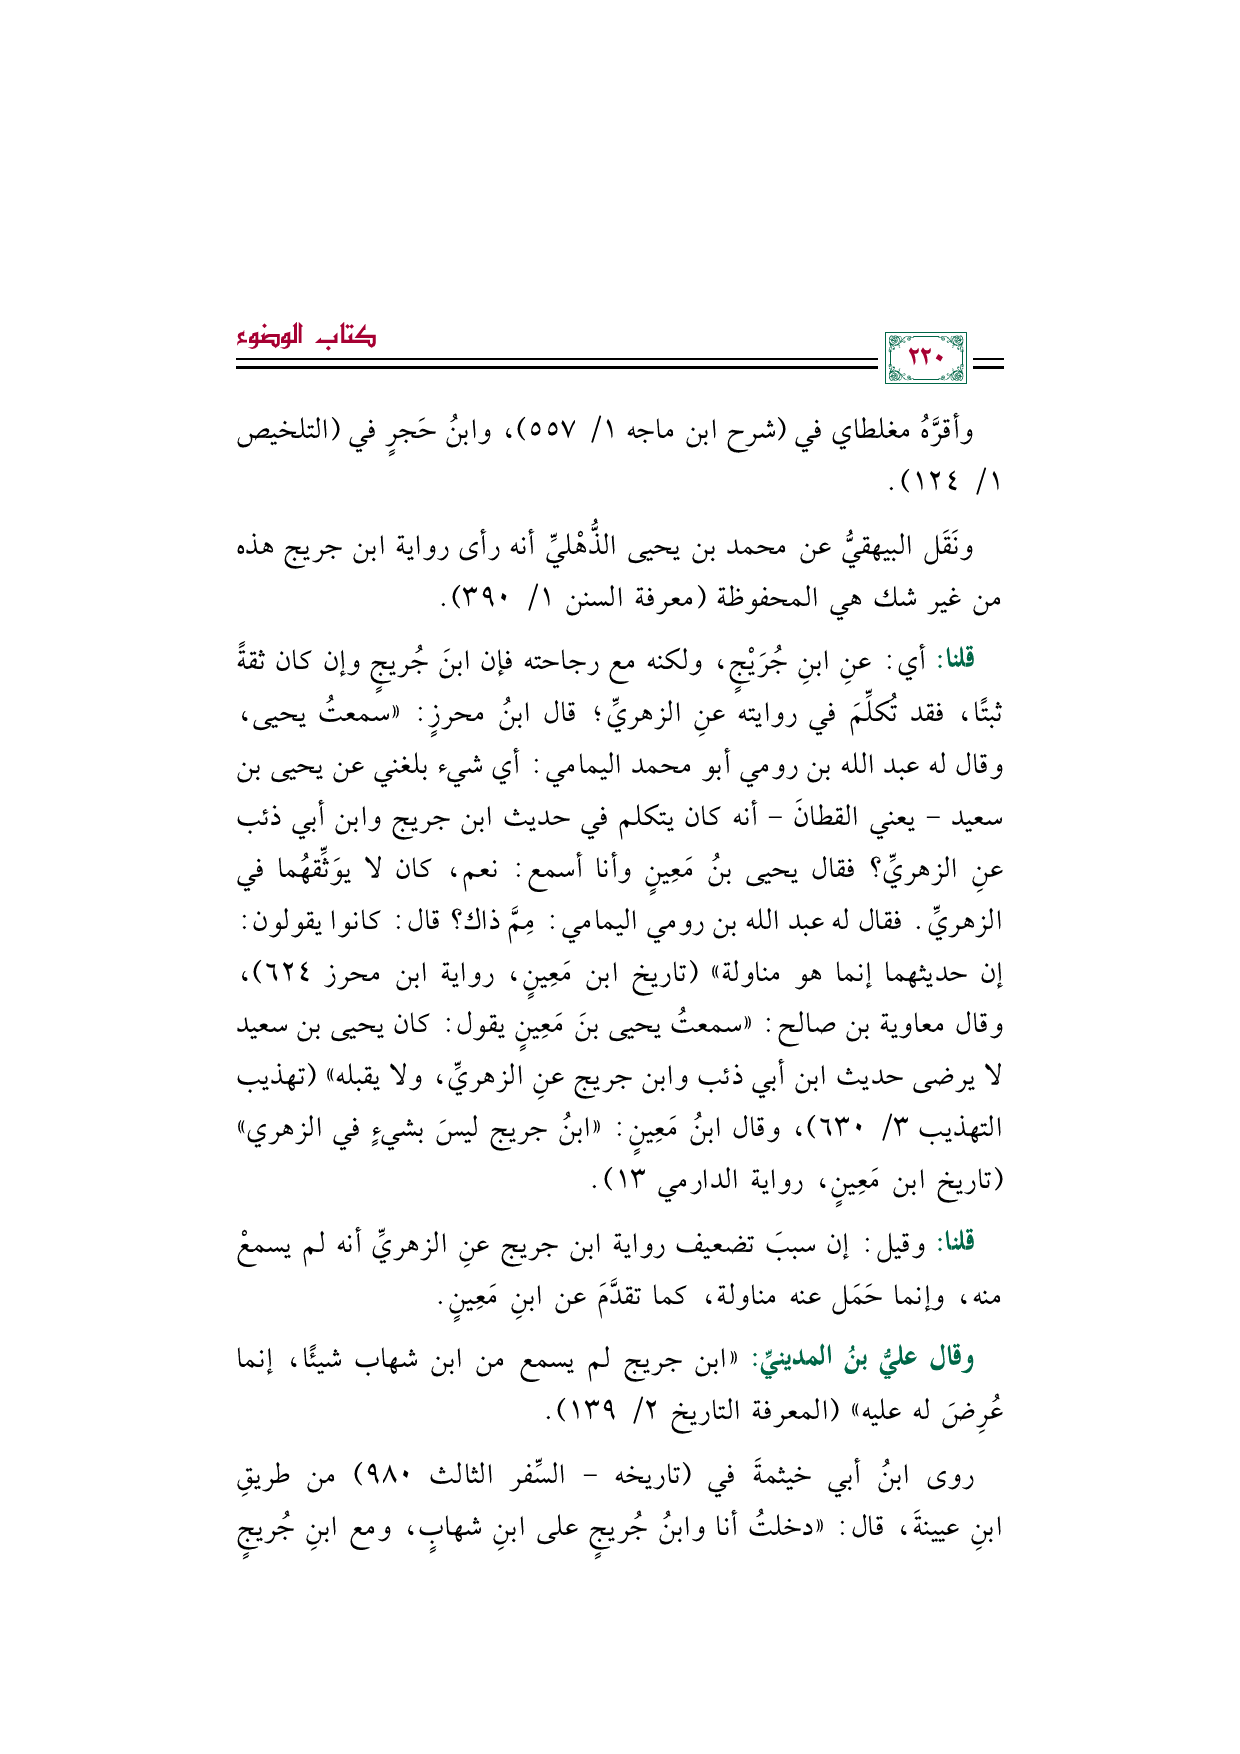 كتاب الوضوء
٢٢٠
وأقرَّهُ مغلطاي في (شرح ابن ماجه ١/ ٥٥٧)، وابنُ حَجرٍ في (التلخيص
١/ ١٢٤).
ونَقَل البيهقيُّ عن محمد بن يحيى الذُّهْليِّ أنه رأى رواية ابن جريج هذه
من غير شك هي المحفوظة (معرفة السنن ١/ ٣٩٠).
قلنا: أي: عنِ ابنِ جُرَيْجٍ، ولكنه مع رجاحته فإن ابنَ جُريجٍ وإن كان ثقةً
ثبتًا، فقد تُكلِّمَ في روايته عنِ الزهريِّ؛ قال ابنُ محرزٍ: «سمعتُ يحيى،
وقال له عبد الله بن رومي أبو محمد اليمامي: أي شيء بلغني عن يحيى بن
سعيد – يعني القطانَ – أنه كان يتكلم في حديث ابن جريج وابن أبي ذئب
عنِ الزهريِّ؟ فقال يحيى بنُ مَعِينٍ وأنا أسمع: نعم، كان لا يوَثِّقهُما في
الزهريِّ. فقال له عبد الله بن رومي اليمامي: مِمَّ ذاك؟ قال: كانوا يقولون:
إن حديثهما إنما هو مناولة» (تاريخ ابن مَعِينٍ، رواية ابن محرز ٦٢٤)،
وقال معاوية بن صالح: «سمعتُ يحيى بنَ مَعِينٍ يقول: كان يحيى بن سعيد
لا يرضى حديث ابن أبي ذئب وابن جريج عنِ الزهريِّ، ولا يقبله» (تهذيب
التهذيب ٣/ ٦٣٠)، وقال ابنُ مَعِينٍ: «ابنُ جريج ليسَ بشيءٍ في الزهري»
(تاريخ ابن مَعِينٍ، رواية الدارمي ١٣).
قلنا: وقيل: إن سببَ تضعيف رواية ابن جريج عنِ الزهريِّ أنه لم يسمعْ
منه، وإنما حَمَل عنه مناولة، كما تقدَّمَ عن ابنِ مَعِينٍ.
وقال عليُّ بنُ المدينيِّ: «ابن جريج لم يسمع من ابن شهاب شيئًا، إنما
عُرِضَ له عليه» (المعرفة التاريخ ٢/ ١٣٩).
روى ابنُ أبي خيثمةَ في (تاريخه – السِّفر الثالث ٩٨٠) من طريقِ
ابنِ عيينةَ، قال: «دخلتُ أنا وابنُ جُريجٍ على ابنِ شهابٍ، ومع ابنِ جُريجٍ